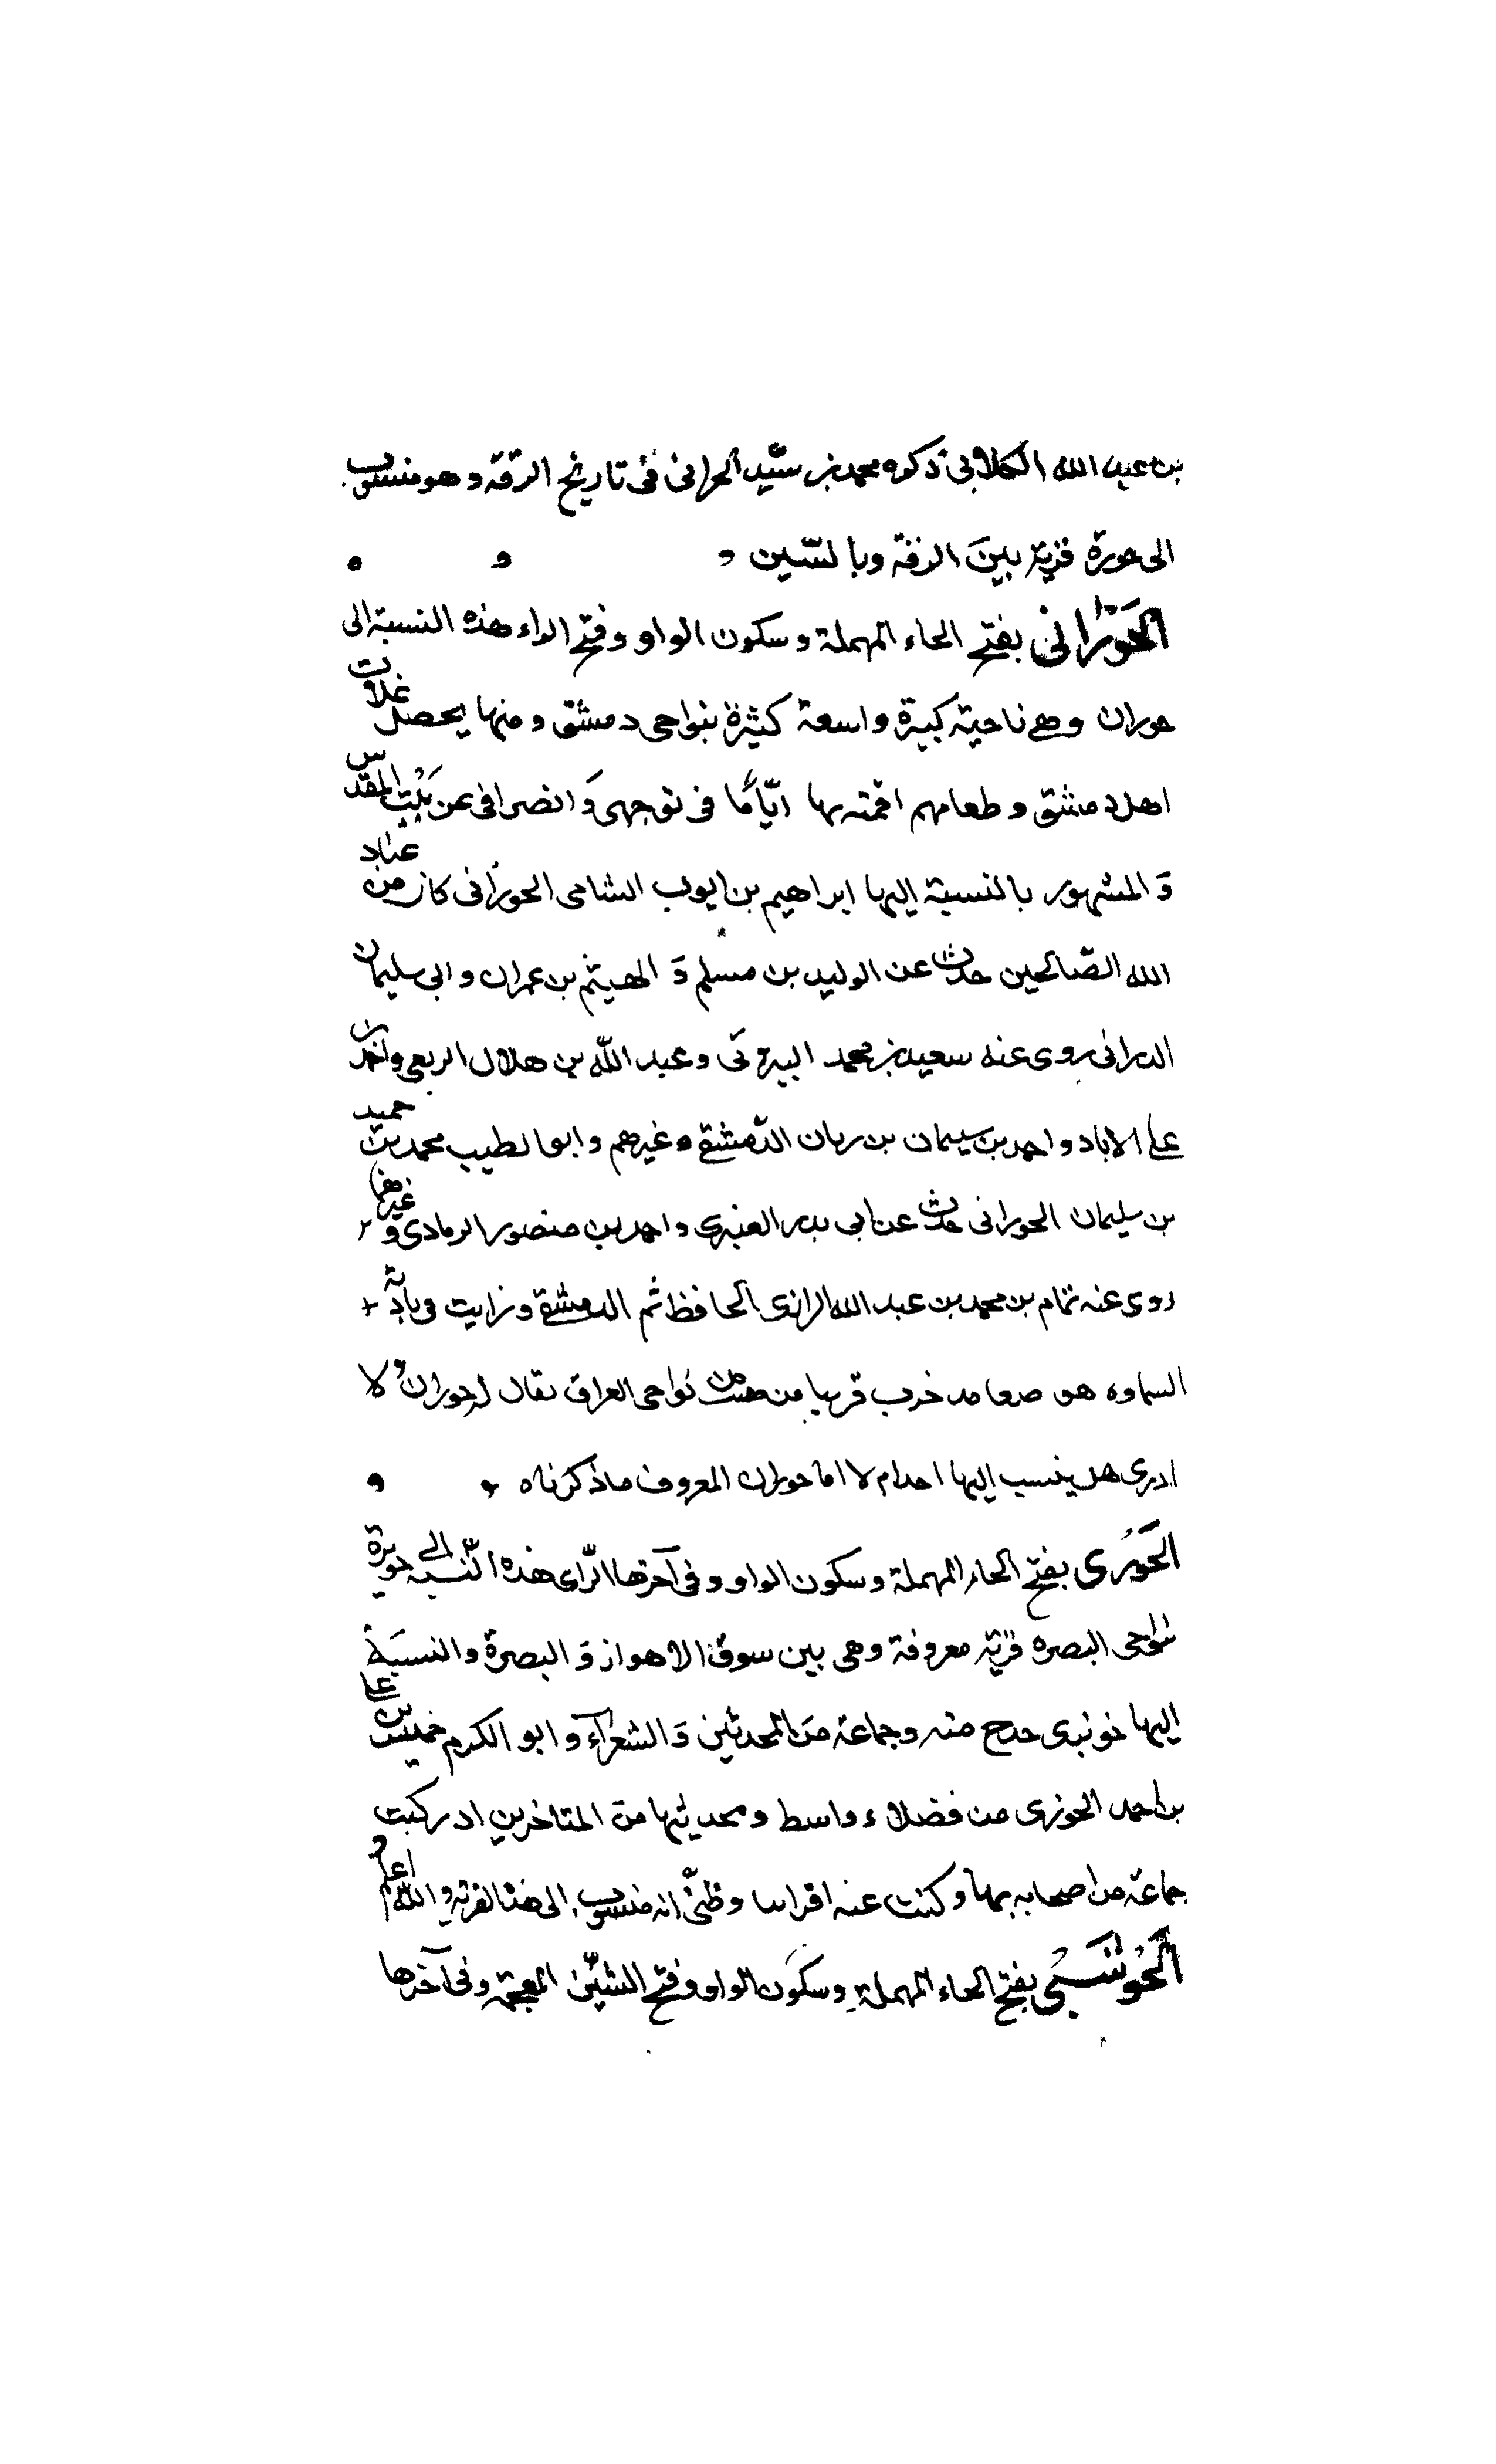 بن عبد الله الكلابى ذكره محمد بن سعيد الحرانى فى تاريخ الرقة وهو منسوب
الى حورة قرية بين الرقة وبالسين
الحَوْرانى بفتح الحاء المهملة وسكون الواو وفتح الراء هذه النسبة الى
حوران وهى ناحية كبيرة واسعة كثيرة بنواحى دمشق ومنها يحصل غلات
اهل دمشق وطعامهم اقمت بها ايّامًا فى توجهى وَانصرافى عن بَيْت المقدس
وَالمشهور بالنسبة اليها ابراهيم بن ايوب الشامى الحورانى كان من عباد
الله الصّالحين حدث عن الوليد بن مسلم وَالهيثم بن عمران وابى سليمان
الدرانى روى عنه سعيد بن محمد البيروتى وعبد الله بن هلال الربعى واحمد بن
على الاباد واحمد بن سيمان بن ربان الدّمشقى وغيرهم وابو الطيب محمد بن حميد
بن سليمان الحورانى حدث عن ابى بدر العنبرى واحمد بن منصور الرمادى وغيرهما
روى عنه تمام بن محمد بن عبد الله الرازى الحافظ ثم الدمشقى ورايت فى بادية
السماوه خرب قريبا من هيت من نواحى العراق يقال له حوران ولا
ادرى هل ينسب اليها احد ام لا اما حوران المعروف ماذكرناه
الحَوْزى بفتح الحاء المهملة وسكون الواو وفى آخرها الزاى هذه النّسبة الى حويزة
بنواحى البصره قرية معروفة وهى بين سوق الاهواز وَالبصرة والنسبَة
اليها منه وجماعة من المحدثين وَالشعرآء وابو الكرم خميس بن على
بن احمد الحوزى من فضلاء واسط ومحديثها من المتاخرين ادركت
جماعة من اصحابه بها وكتبت عنه وظنّى انه منسوب الى هذه القرية والله اعلم
الحَوْشَبى بفتح الحاء المهملة وسكون الواو وفتح الشين المعجمة وفى آخرها